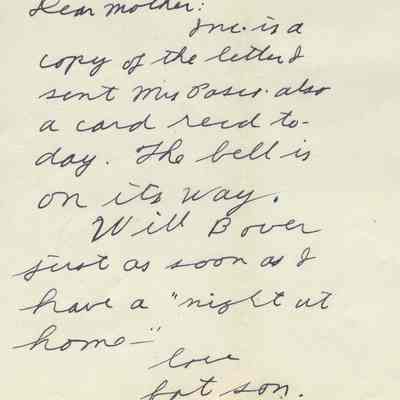 Dear mother:
Inc. is a
copy of the letter I
sent Mrs Pasco. also
a card recd to-
day. The bell is
on its way.
Will B over
just as soon as I
have a "night at
home-"
love
fat son.